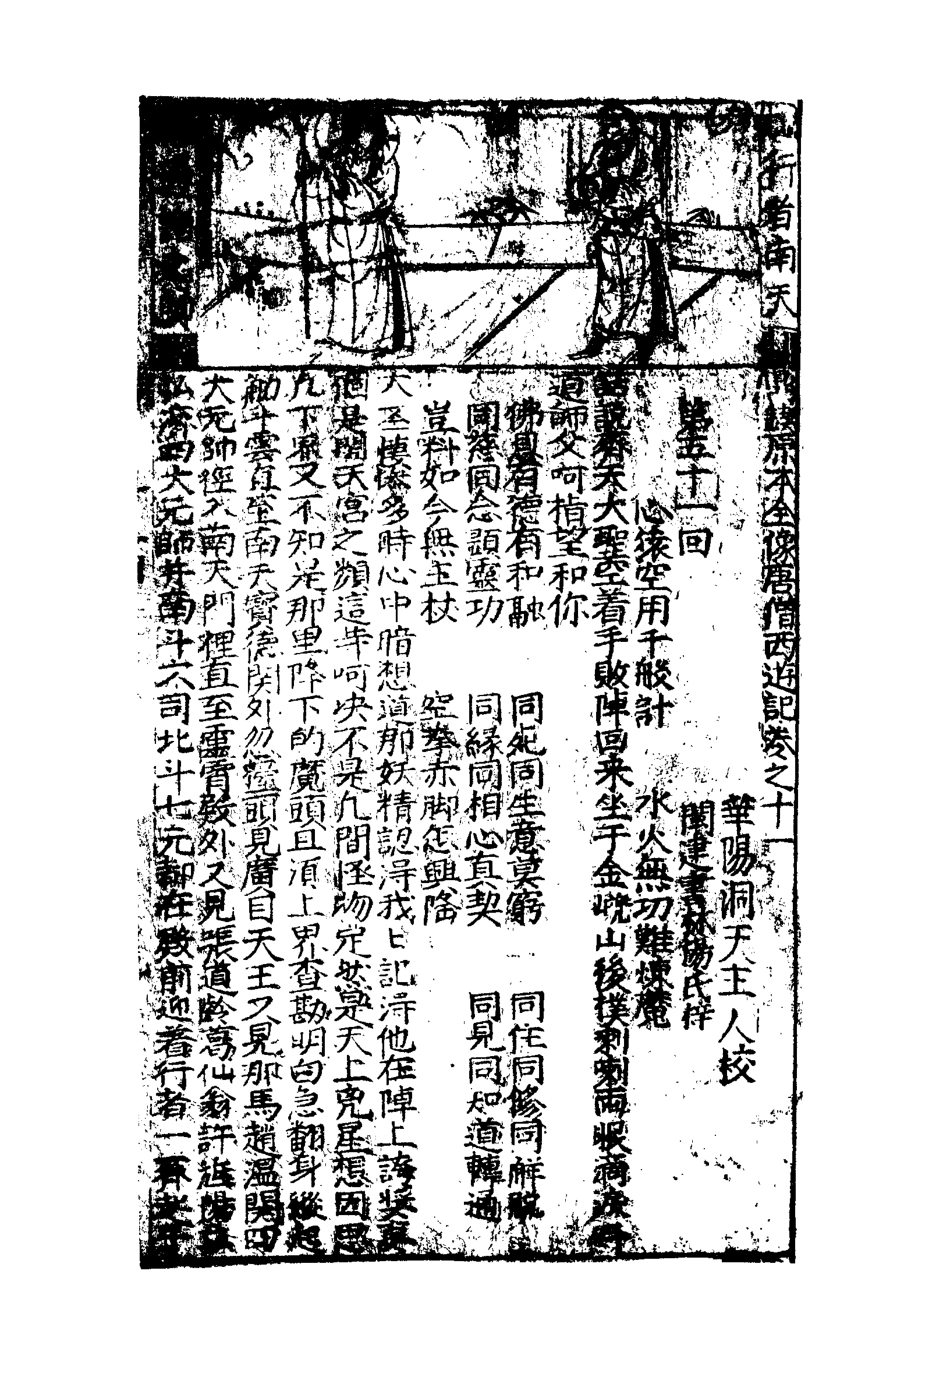 行者南天
鐫原本全像唐僧西遊記卷之十一
華陽洞天主人校
閩建書林楊氏梓
第五十一回
心猿空用千般計　水火無功難煉魔
話說齊天大聖空着手敗陣回来坐于金𠒎山後撲剌剌兩眼滴淚
道師父呵指望和你
佛恩有德有和融　同㓜同生意莫窮　同住同修同解脫
同慈同念顯靈功　同緣同相心真契　同見同知道轉通
豈料如今無主杖　空拳赤脚怎興隆
大圣悽慘多時心中暗想道那妖精認得我上記得他在陣上誇奬
個是閙天宮之類這等呵決不是凡間怪物定然是天上兇星想因思
凡下界又不知是那里降下的魔頭且須上界查勘明白急翻身縱起
觔斗雲直至南天寳德関外勿擡頭見廣目天王又見那馬趙溫関四
大元帥徑入南天門裡直至靈霄殿外又見張道齡葛仙翁許旌陽
弘濟四大元師并南斗六司北斗七元都在殿前迎着行者一齊